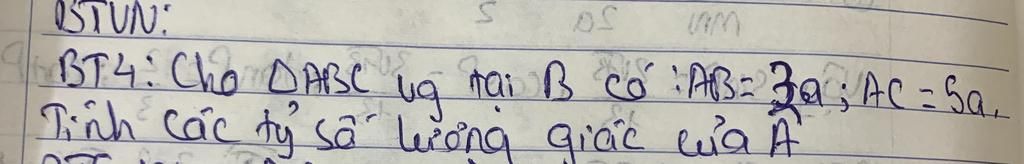 BTVN:
BT4: Cho ΔABC vg tại B có : AB = 3a ; AC = 5a.
Tính các tỷ số lượng giác của Â